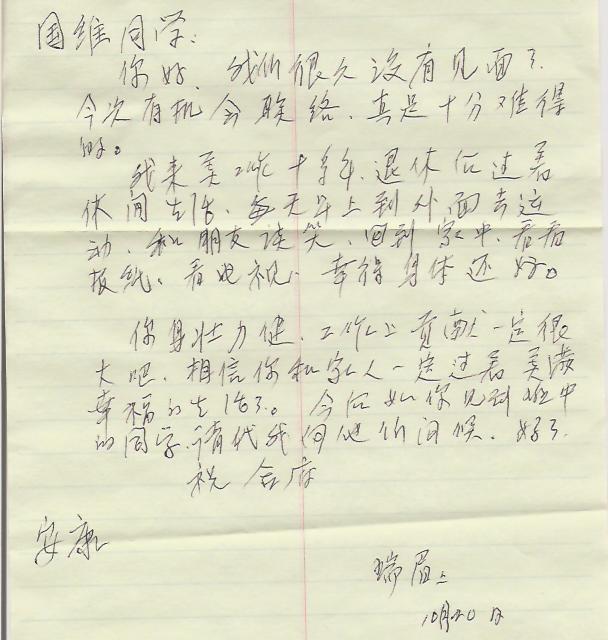 国维同学:
你好,我们很久没有见面了.
今次有机会联络,真是十分难得
的。
我来美工作十多年,退休后过着
休闲生活,每天早上到外面去运
动,和朋友谈笑,回到家中,看看
报纸,看电视,幸得身体还好。
你身壮力健,工作上贡献一定很
大吧,相信你和家人一定过着美满
幸福的生活了。今后如你见到班中
的同学,请代我向他们问候,好了.
祝合府
安康
瑞眉上
10月20日